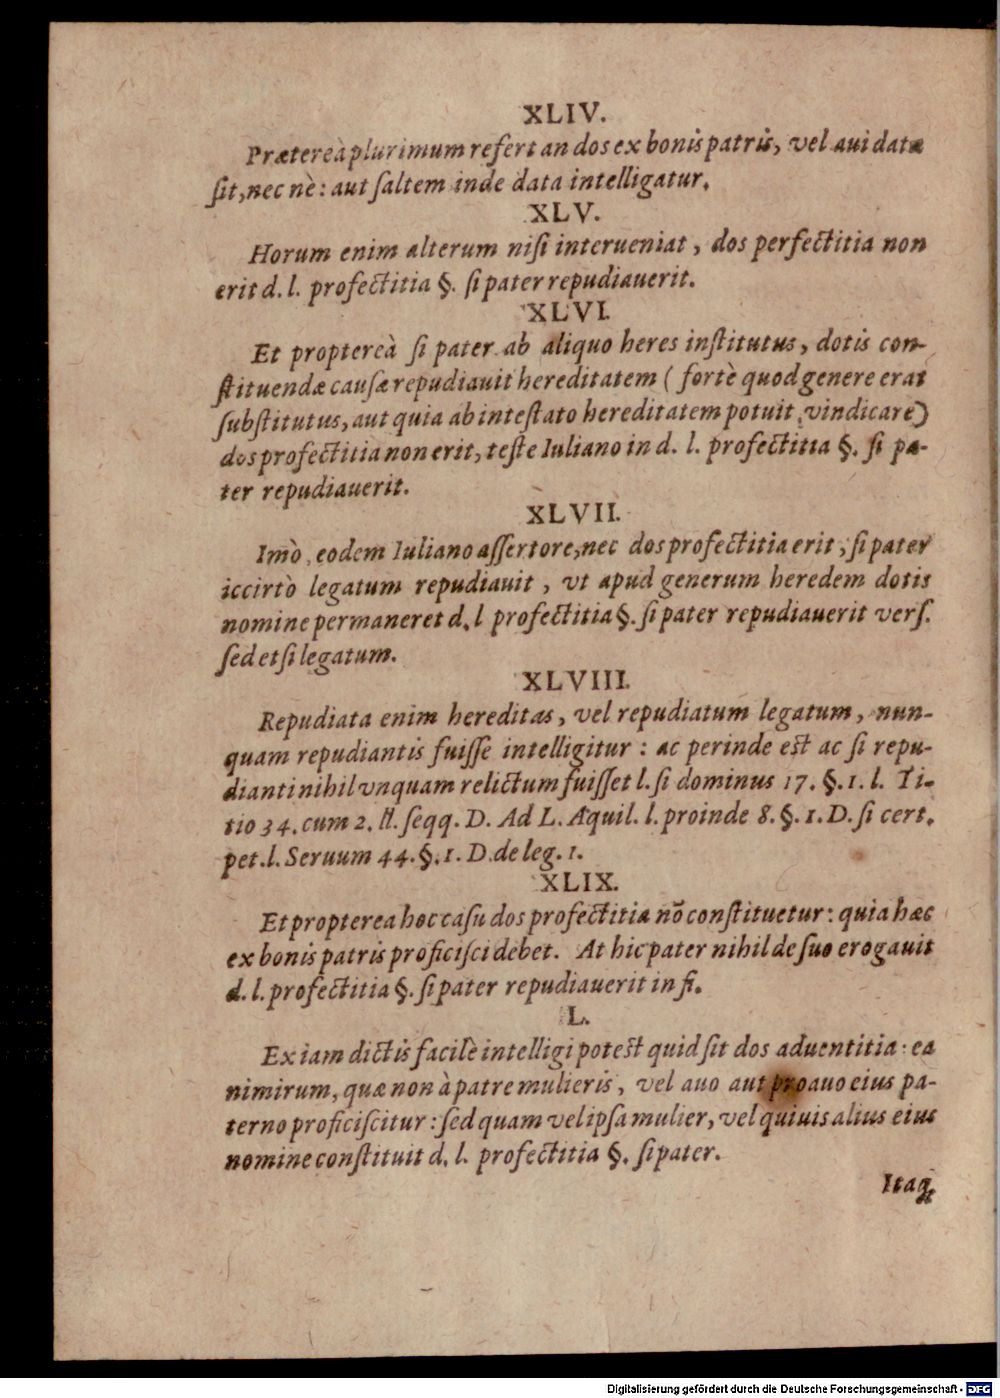 XLIV.
Prætereà plurimum refert an dos ex bonis patris, vel aui data
sit, nec nè: aut saltem inde data intelligatur.
XLV.
Horum enim alterum nisi interueniat, dos perfectitia non
erit d. l. profectitia §. si pater repudiauerit.
XLVI.
Et proptereà si pater ab aliquo heres institutus, dotis con-
stituendæ causæ repudiauit hereditatem (fortè quod genere erat
substitutus, aut quia ab intestato hereditatem potuit vindicare)
dos profectitia non erit, teste Iuliano in d. l. profectitia §. si pa-
ter repudiauerit.
XLVII.
Imò, eodem Iuliano assertore, nec dos profectitia erit, si pater
iccirtò legatum repudiauit, vt apud generum heredem dotis
nomine permaneret d. l profectitia §. si pater repudiauerit vers.
sed et si legatum.
XLVIII.
Repudiata enim hereditas, vel repudiatum legatum, nun-
quam repudiantis fuisse intelligitur: ac perinde est ac si repu-
dianti nihil vnquam relictum fuisset l. si dominus 17. §. 1. l. Ti-
tio 34. cum 2. ll. seqq. D. Ad L. Aquil. l. proinde 8. §. 1. D. si cert.
pet. l. Seruum 44. §. 1. D. de leg. 1.
XLIX.
Et propterea hoc casu dos profectitia nō constituetur: quia hæc
ex bonis patris proficisci debet. At hic pater nihil de suo erogauit
d. l. profectitia §. si pater repudiauerit in fi.
L.
Ex iam dictis facilè intelligi potest quid sit dos aduentitia: ea
nimirum, quæ non à patre mulieris, vel auo aut proauo eius pa-
terno proficiscitur: sed quam vel ipsa mulier, vel quiuis alius eius
nomine constituit d. l. profectitia §. si pater.
Itaq;
Digitalisierung gefördert durch die Deutsche Forschungsgemeinschaft - DFG